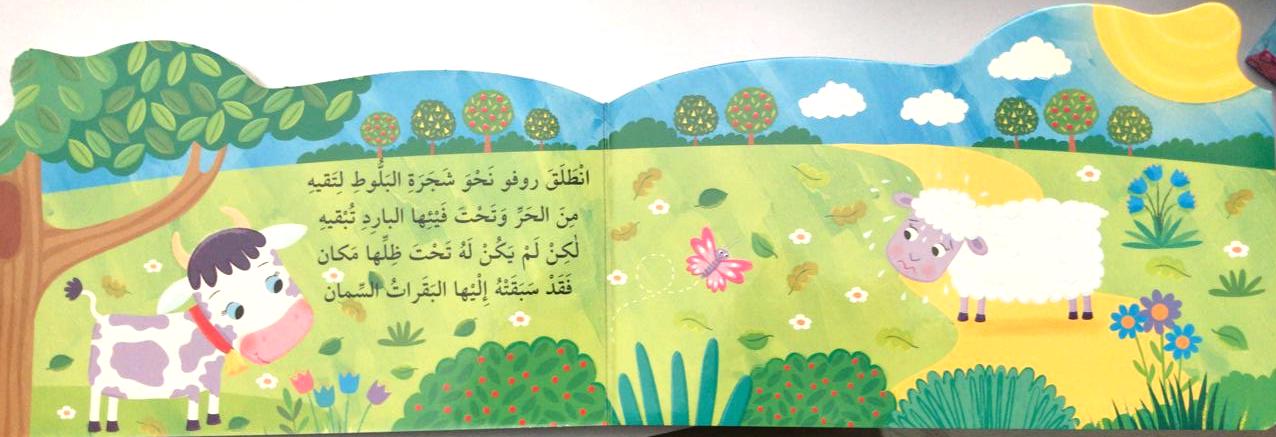 انْطَلَقَ روفو نَحْوَ شَجَرَةِ البَلُّوطِ لِتَقيهِ
مِنَ الحَرِّ وَتَحْتَ فَيْئِها البارِدِ تُبْقيهِ
لٰكِنْ لَمْ يَكُنْ لَهُ تَحْتَ ظِلِّها مَكان
فَقَدْ سَبَقَتْهُ إِلَيْها البَقَراتُ السِّمان